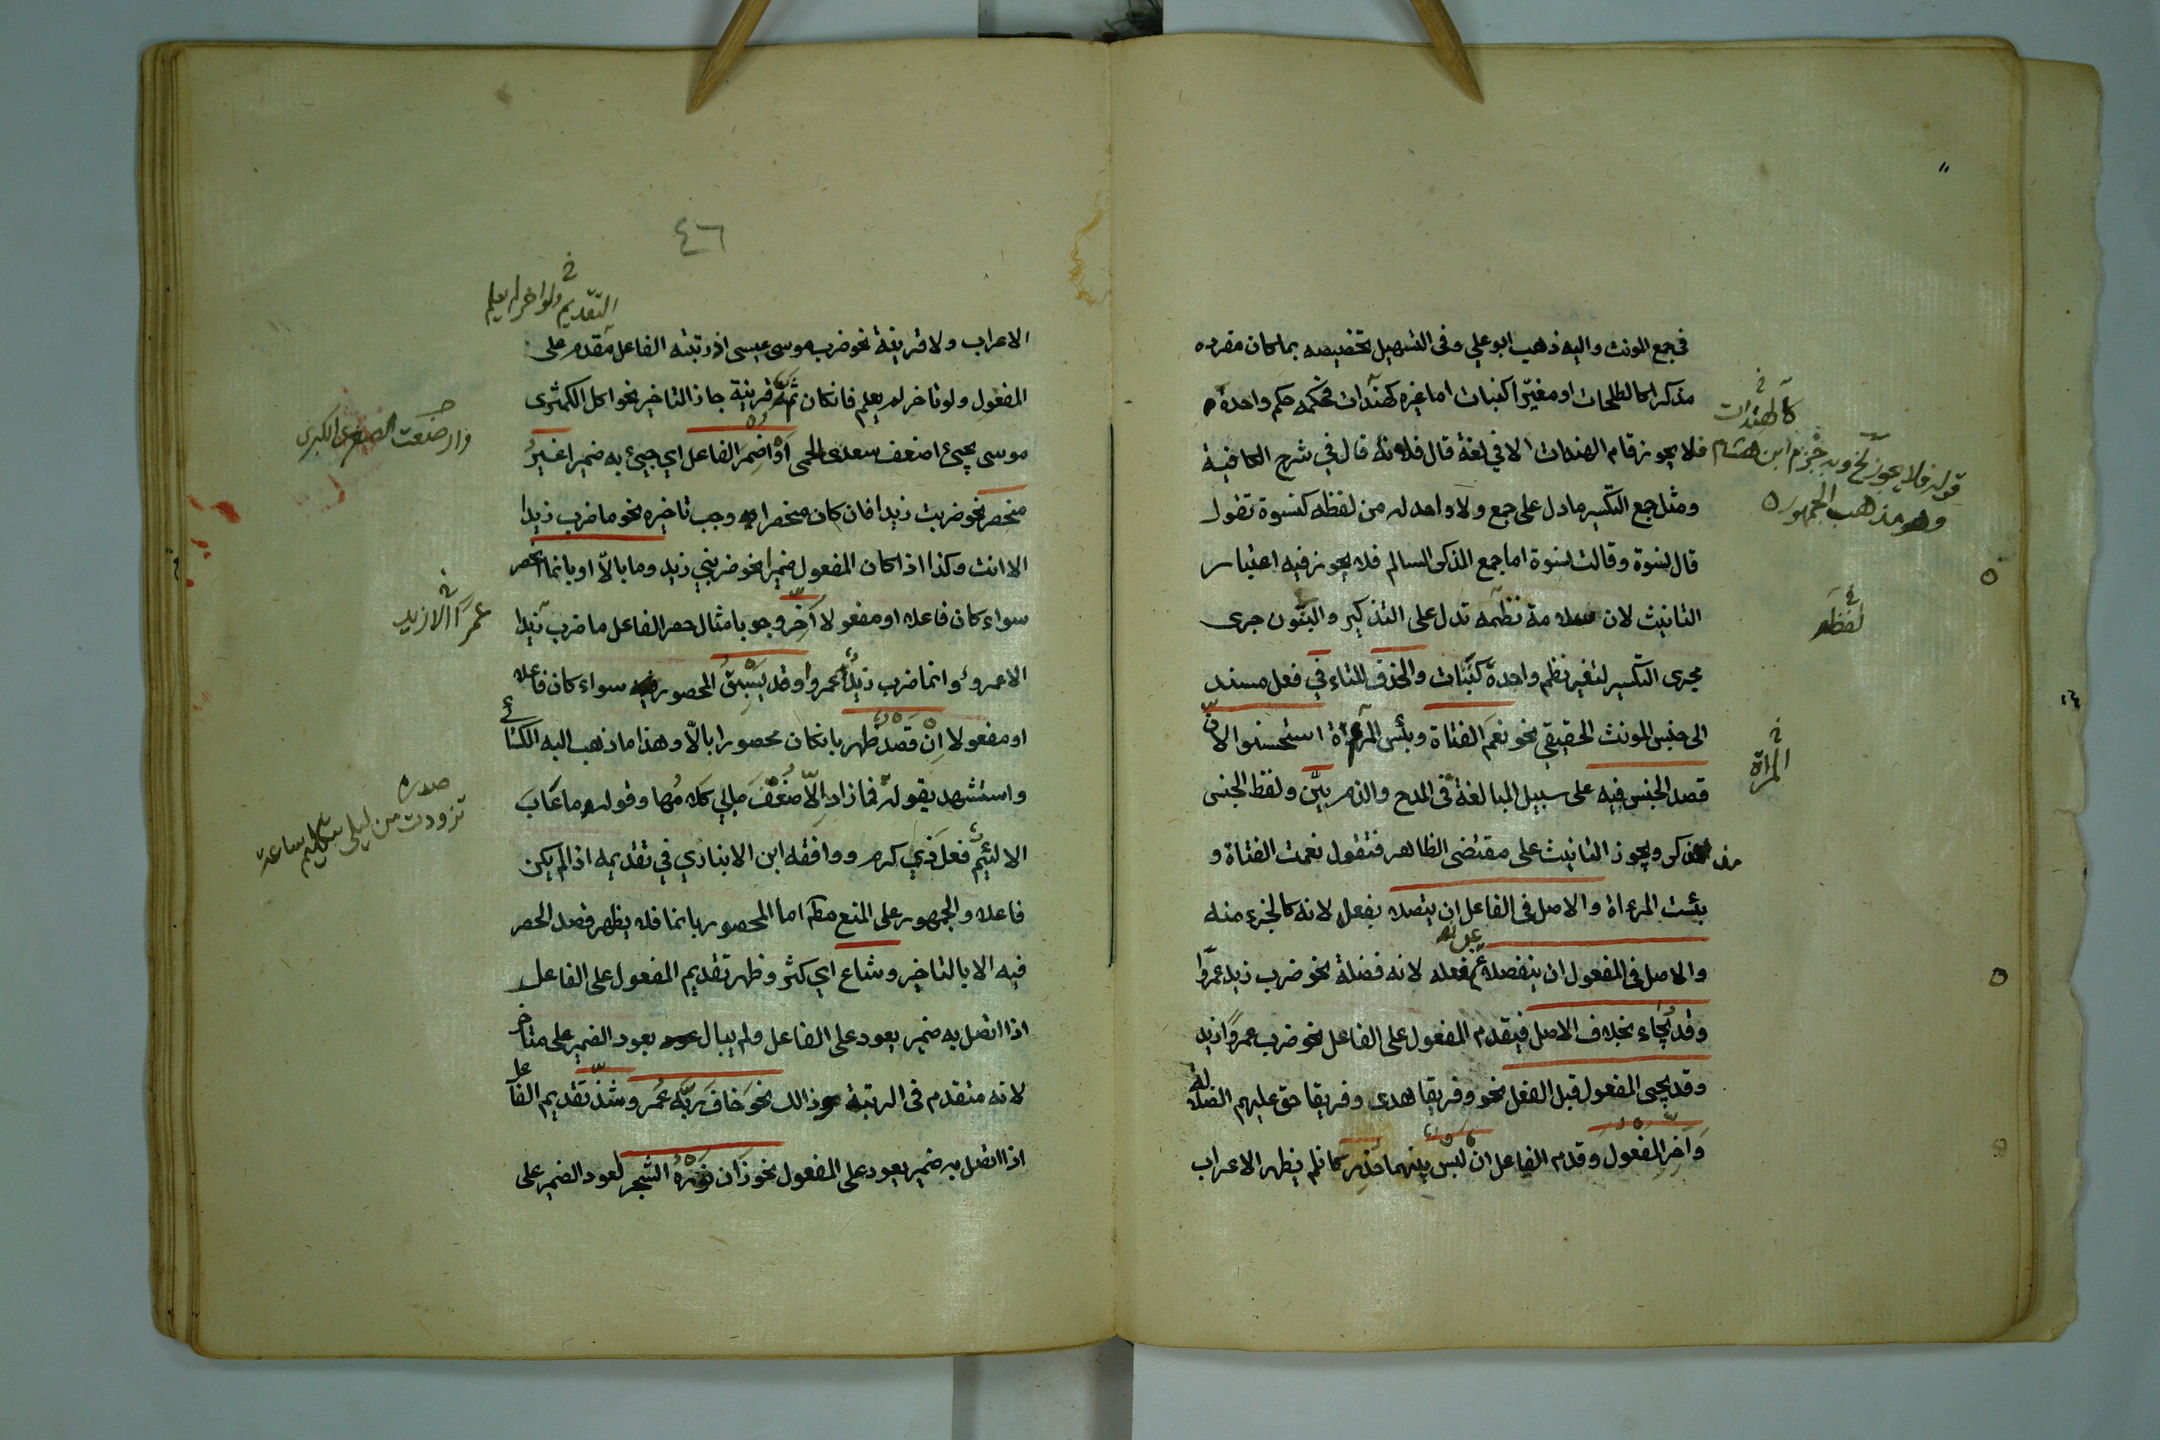 في جمع المونث واليه ذهب ابو علي وفى التسهيل تخصيصه بما كان مفرده
مذكرا كالطلحات او مغيّرا كبنات اما غيره كهندات فحكمه حكم واحده
فلا يجوز قام الهندات الا في لغة قال فلانة قال في شرح الكافية
ومثل جمع التكسير ما دل على جمع ولا واحد له من لفظه كنسوة تقول
قال نسوة وقالت نسوة اما جمع المذكر السالم فلا يجوز فيه اعتبار
التانيث لان سلامة نظمه تدل على التذكير والبنون جرى
مجرى التكسير لتغير نظم واحده كبنات والحذف للتاء في فعل مسند
الى جنس المونث الحقيقي نحو نعم الفتاة وبئس المرءة استحسنوا لان
قصد الجنس فيه على سبيل المبالغة فى المدح والذم بيّن ولفظ الجنس
مذكر ويجوز التانيث على مقتضى الظاهر فتقول نعمت الفتاة و
بئست المرءاة والاصل فى الفاعل ان يتصلا بفعله لانه كالجزء منه
والاصل فى المفعول ان ينفصلا عن فعله لانه فضلة نحو ضرب زيد عمرًا
وقد يُجاء بخلاف الاصل فيقدم المفعول على الفاعل نحو ضرب عمرًا زيد
وقد يجى المفعول قبل الفعل نحو وفريقا هدى وفريقا حق عليهم الضلالة
وَاَخِّرِ المفعول وقدم الفاعل ان لبس بينهما حُذِر كما لم يظهر الاعراب
كالهندات
قوله فلا يجوز الخ وبه جزم ابن هشام
وهو مذهب الجمهور
لفظه
المراة
عن
٤٦
التّقديم ولو اخر لم يعلم
الاعراب ولا قرينة نحو ضرب موسى عيسى اذ رتبة الفاعل مقدم على
المفعول ولو تاخر لم يعلم فان كان ثَمَّ قرينة جاز التاخير نحو اكل الكمثرى
موسى يحيئ اضنت سعدى الحمى اَوْ اُضْمِرَ الفاعل اي جيئ به ضميرا غَيْرُ
منحصر نحو ضربت زيدا فان كان منحصرا وجب تاخيره نحو ما ضرب زيدا
الا انت وكذا اذا كان المفعول ضميرا نحو ضربني زيد وما بالّا او بانما انحصر
سواء كان فاعلا او مفعولا اَخِّر وجوبا مثال حصر الفاعل ما ضرب زيدا
الا عمرو وانما ضرب زيدٌ عمروا وقد يَسْبِقُ المحصور سواء كان فاعلا
او مفعولا اِنْ قَصْدٌ ظهر بان كان محصورا بالّا وهذا ما ذهب اليه الكسائي
واستشهد بقوله فما زاد الّا ضعْفَ ما بي كلامُها وقوله ما عَابَ
الا لئيمٌ فعلَ ذي كرم ووافقه ابن الانباري في تقديمه اذا لم يكن
فاعلا والجمهور على المنع مطم اما المحصور بانما فلا يظهر قصد الحصر
فيه الا بالتاخير وشاع اي كثر وظهر تقديم المفعول على الفاعل
اذا اتصل به ضمير يعود على الفاعل ولم يبال بعود الضمير على متاخر
لانه متقدم فى الرتبة وذالك نحو خَافَ رَبَّه عُمَر وشذّ تقديم الفاعل
اذا اتصل به ضمير يعود على المفعول نحو زَان نَوْرُهُ الشجر لعود الضمير على
وارضعت الصغرى الكبرى
عمرًا الا زيد
صدره
تزودت من ليلى بتكليم ساعة